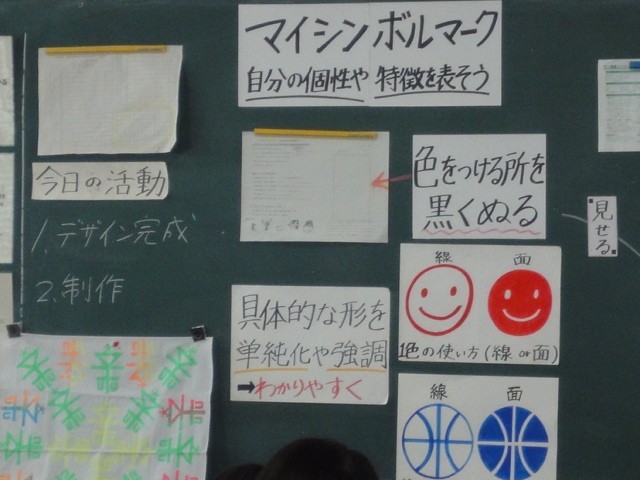 マイシンボルマーク
自分の個性や 特徴を表そう
今日の活動
1. デザイン完成
2. 制作
色をつける所を
黒くぬる
見せる
具体的な形を
単純化や強調
➡わかりやすく
線 面
1色の使い方(線 or 面)
線 面